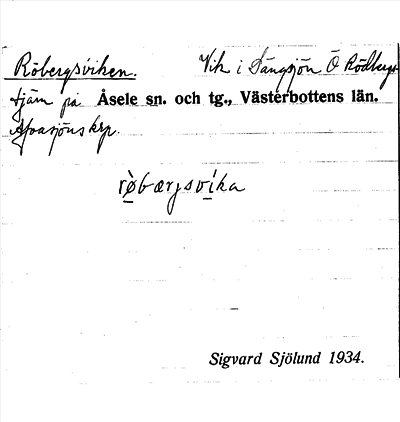 Röbergsviken. Vik i Långsjön Ö Rödbergs-
tjärn på Åsele sn. och tg., Västerbottens län.
Afvasjöns krp.
rò̲bærjsvi̲ka
Sigvard Sjölund 1934.